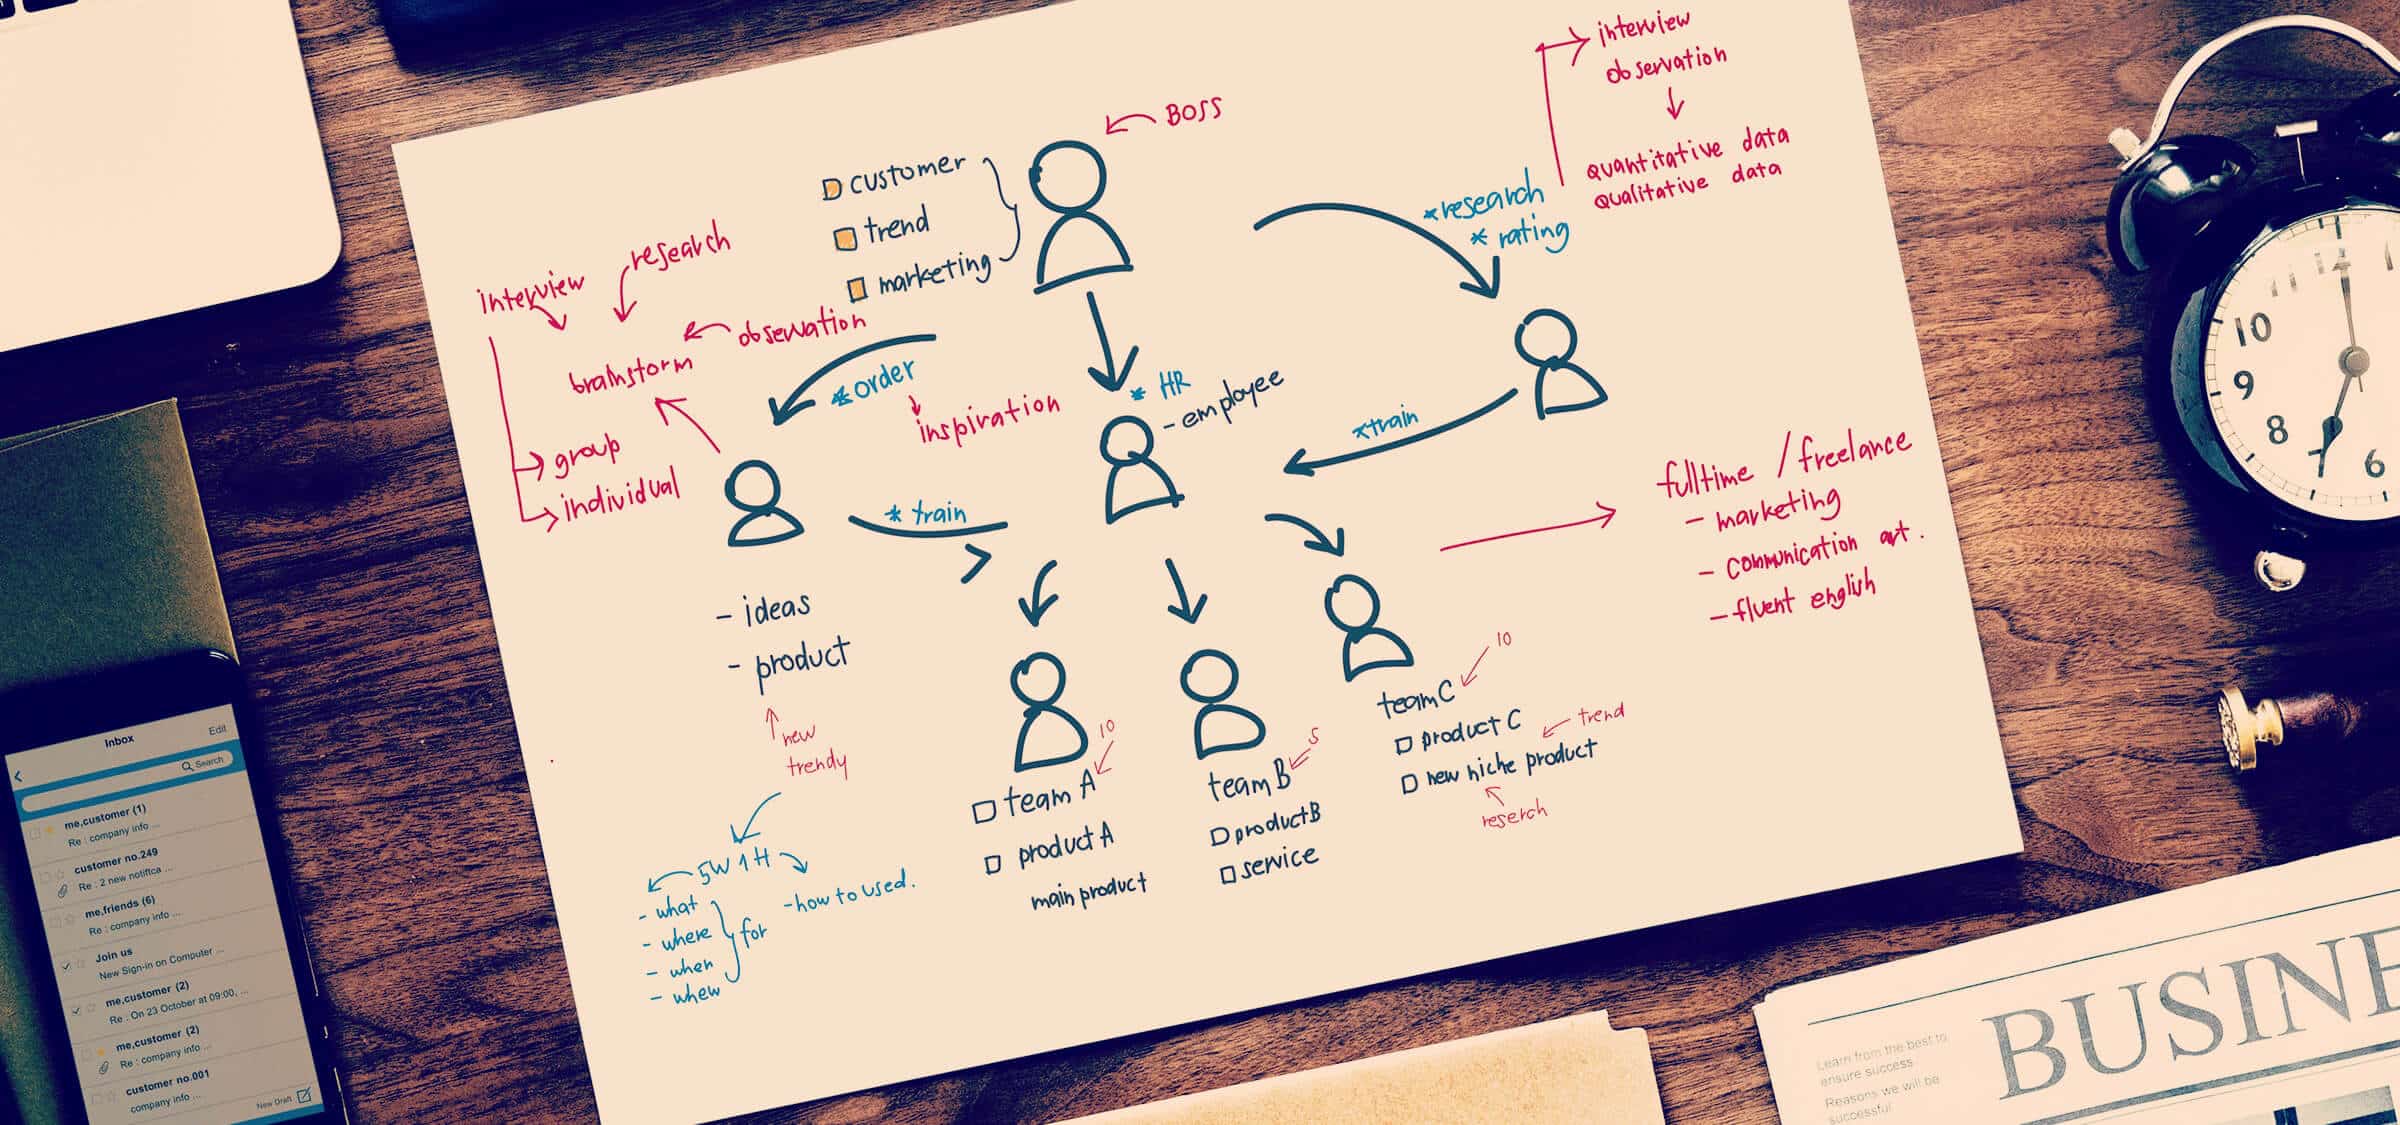 BOSS
customer
trend
marketing
interview
observation
quantitative data
qualitative data
*research
* rating
research
interview
observation
brainstorm
group
individual
*order
inspiration
* HR
- employee
*train
* train
fulltime / freelance
- marketing
- communication art.
- fluent english
- ideas
- product
new
trendy
5W1H
- what
- where
- when
- whew
for
- how to used.
10
team A
product A
main product
5
team B
product B
service
10
team C
product C
trend
new niche product
reserch
Inbox
Edit
Search
me,customer (1)
Re : company info ...
customer no.249
Re : 2 new notifica ...
me,friends (6)
Re : company info ...
Join us
New Sign-in on Computer ...
me,customer (2)
Re : On 23 October at 09:00, ...
me,customer (2)
Re : company info ...
customer no.001
company info ...
New Draft
10
9
8
6
BUSINE
Learn from the best to
ensure success
Reasons we will be
successful